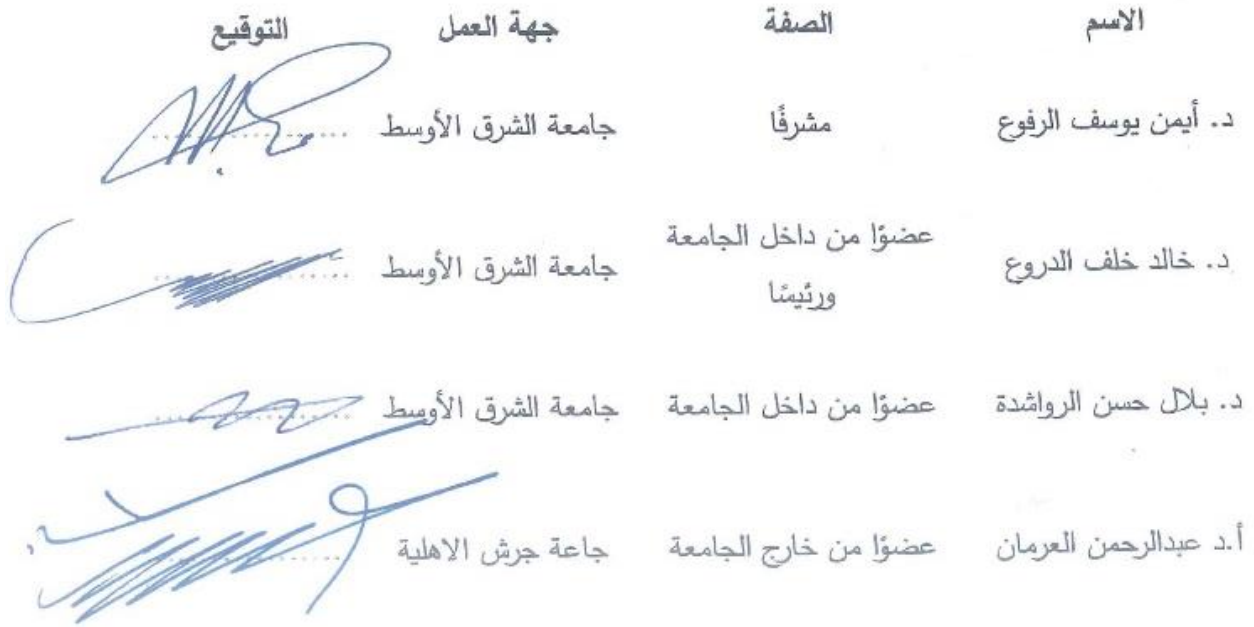 الاسم الصفة جهة العمل التوقيع
د. أيمن يوسف الرفوع مشرفًا جامعة الشرق الأوسط
د. خالد خلف الدروع عضوًا من داخل الجامعة ورئيسًا جامعة الشرق الأوسط
د. بلال حسن الرواشدة عضوًا من داخل الجامعة جامعة الشرق الأوسط
أ.د عبدالرحمن العرمان عضوًا من خارج الجامعة جاعة جرش الاهلية